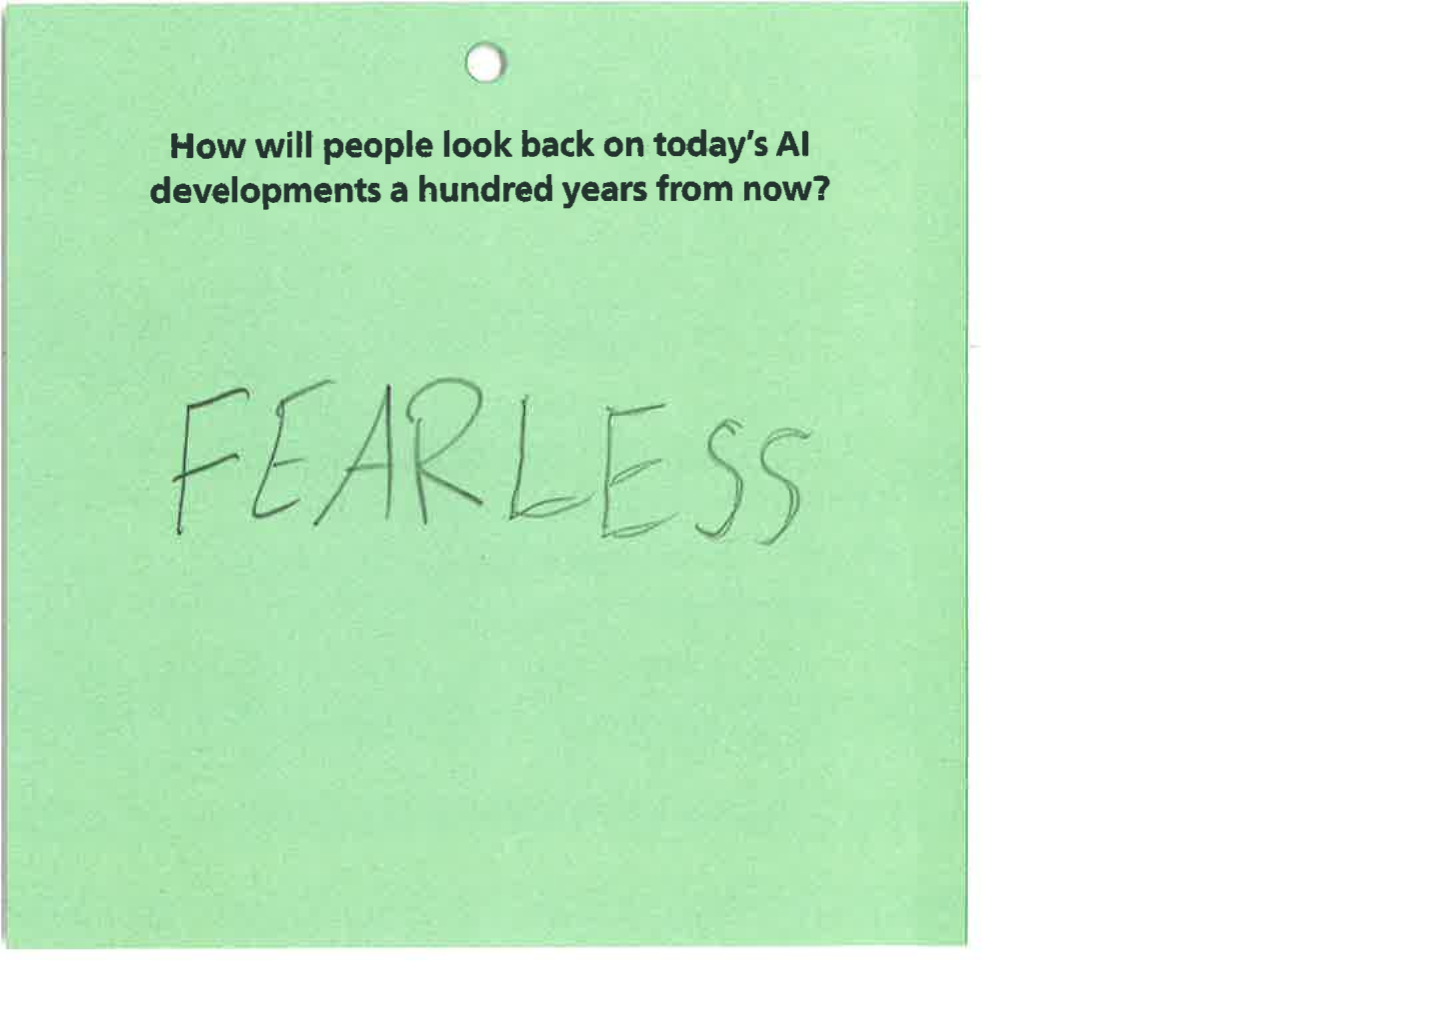 How will people look back on today's AI
developments a hundred years from now?
FEARLESS